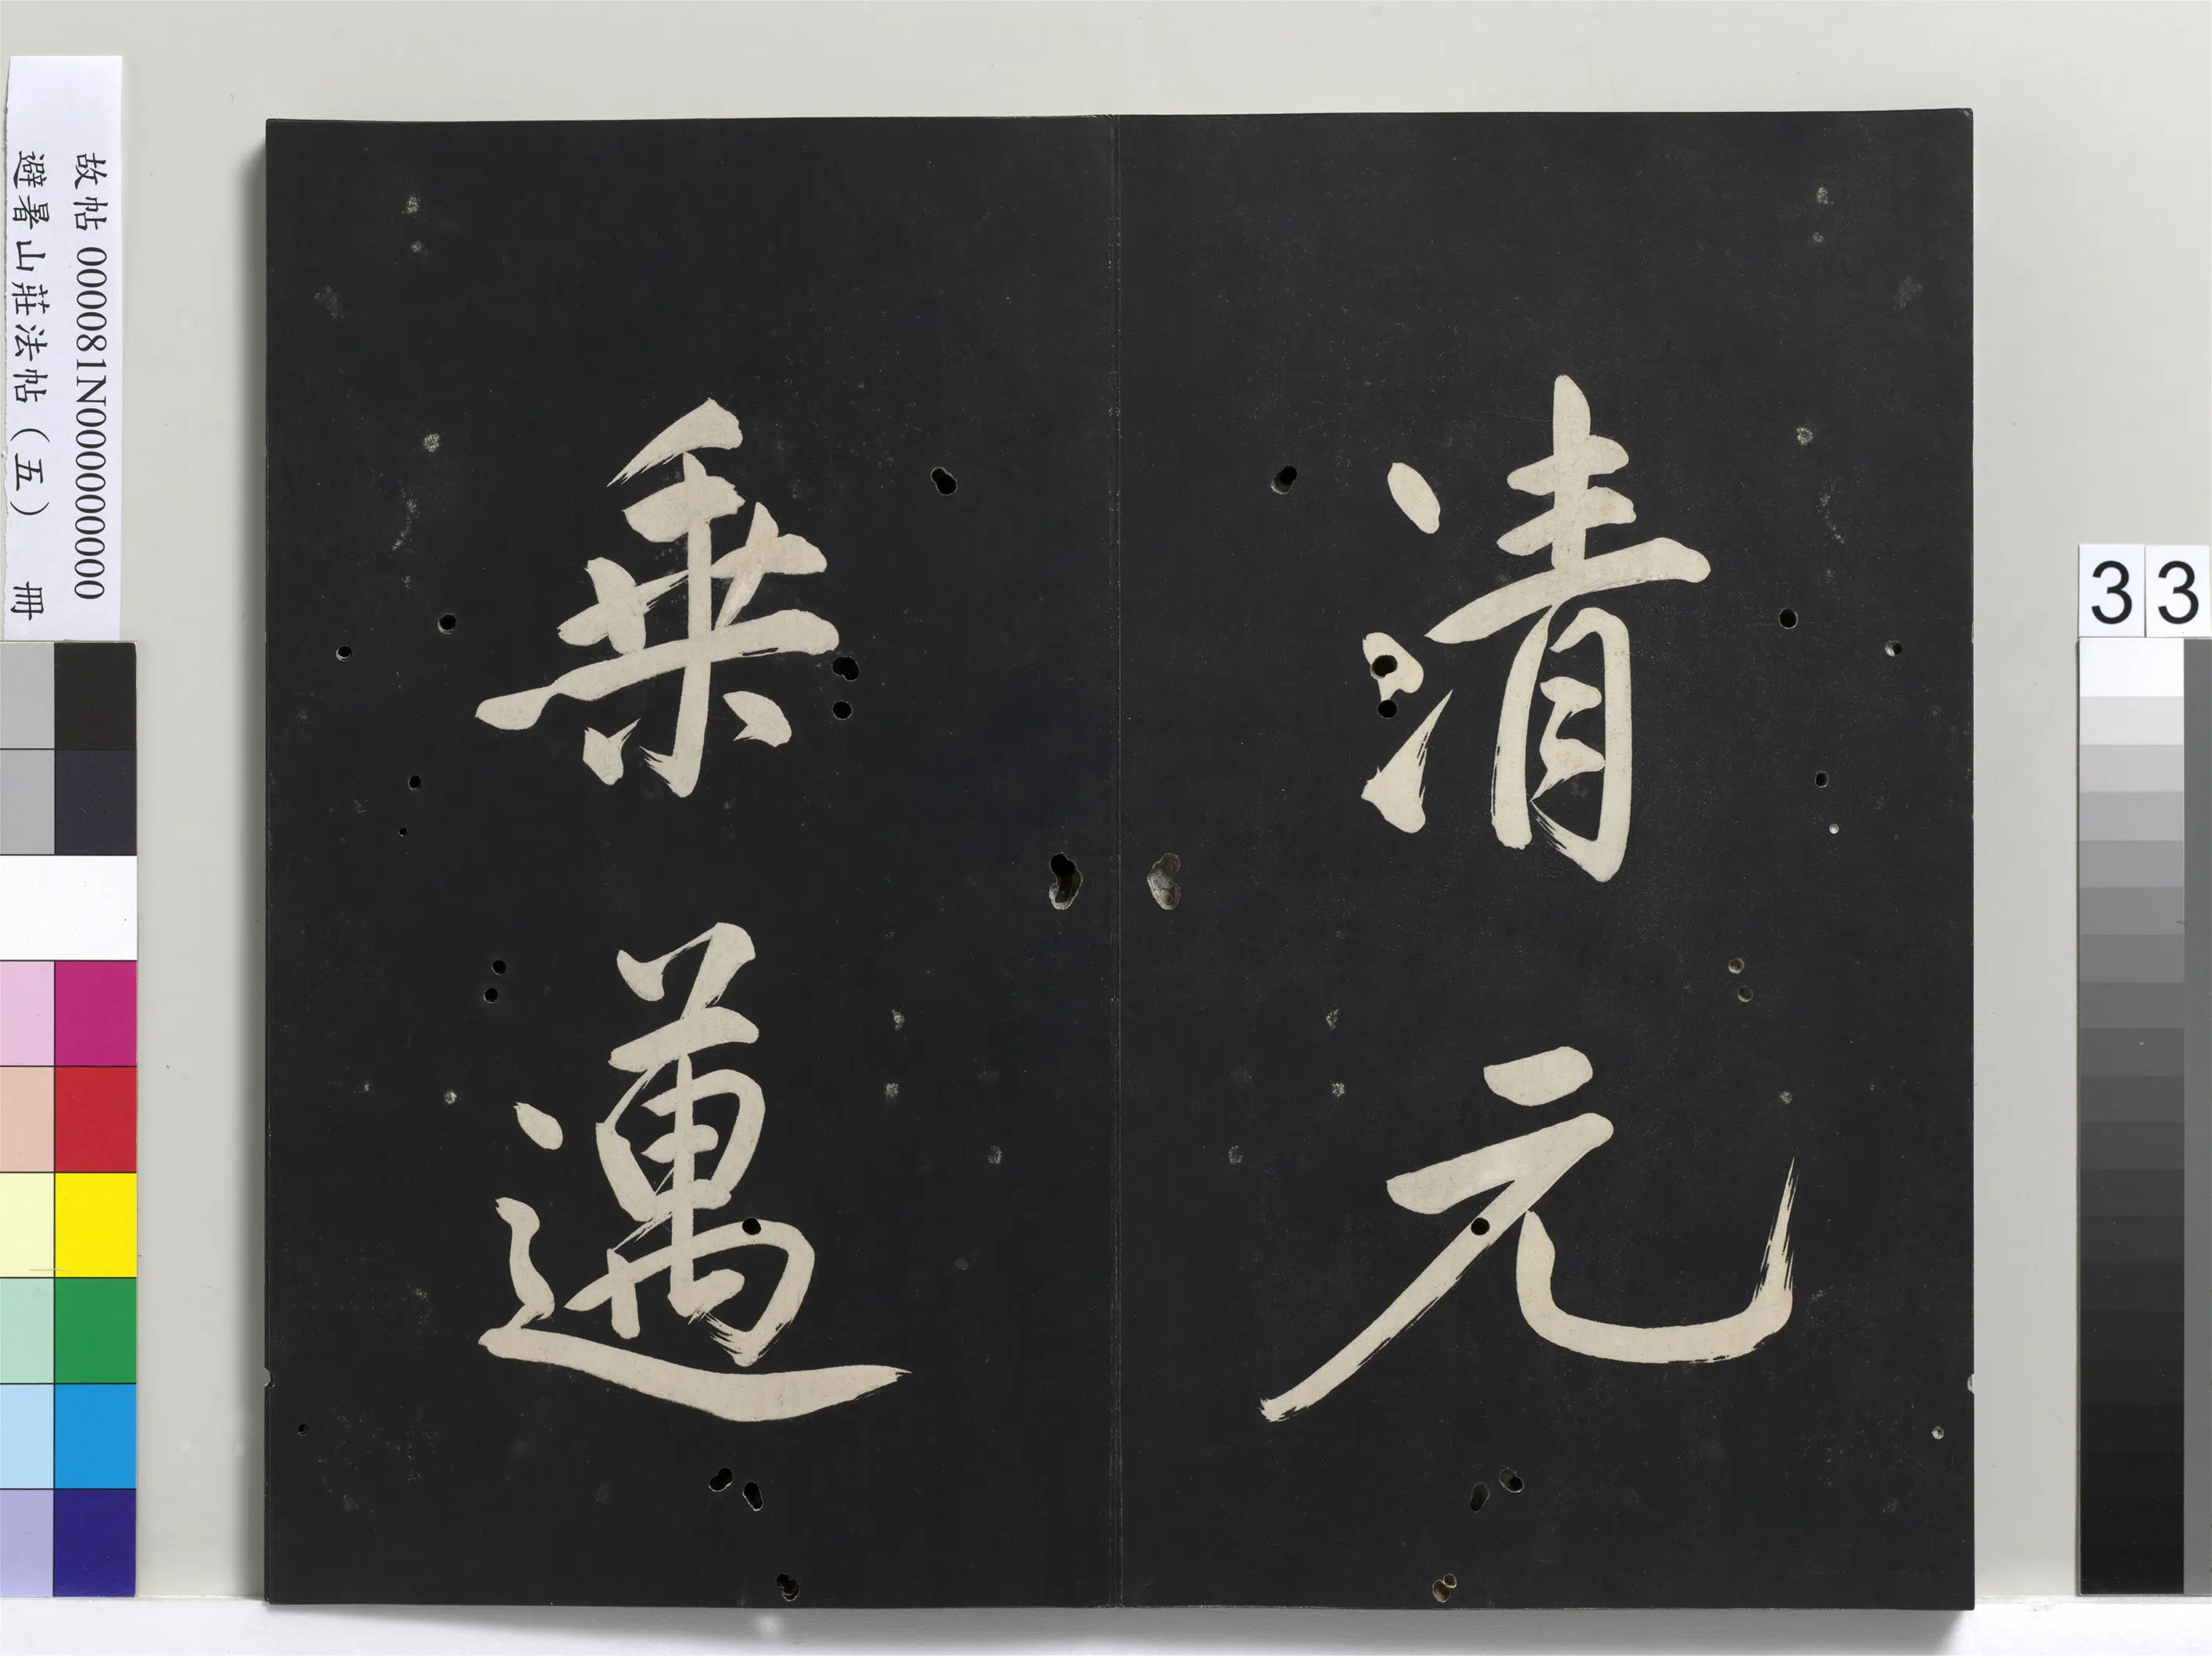 清元
乘邁
故帖 000081N000000000
避暑山莊法帖（五） 冊
33